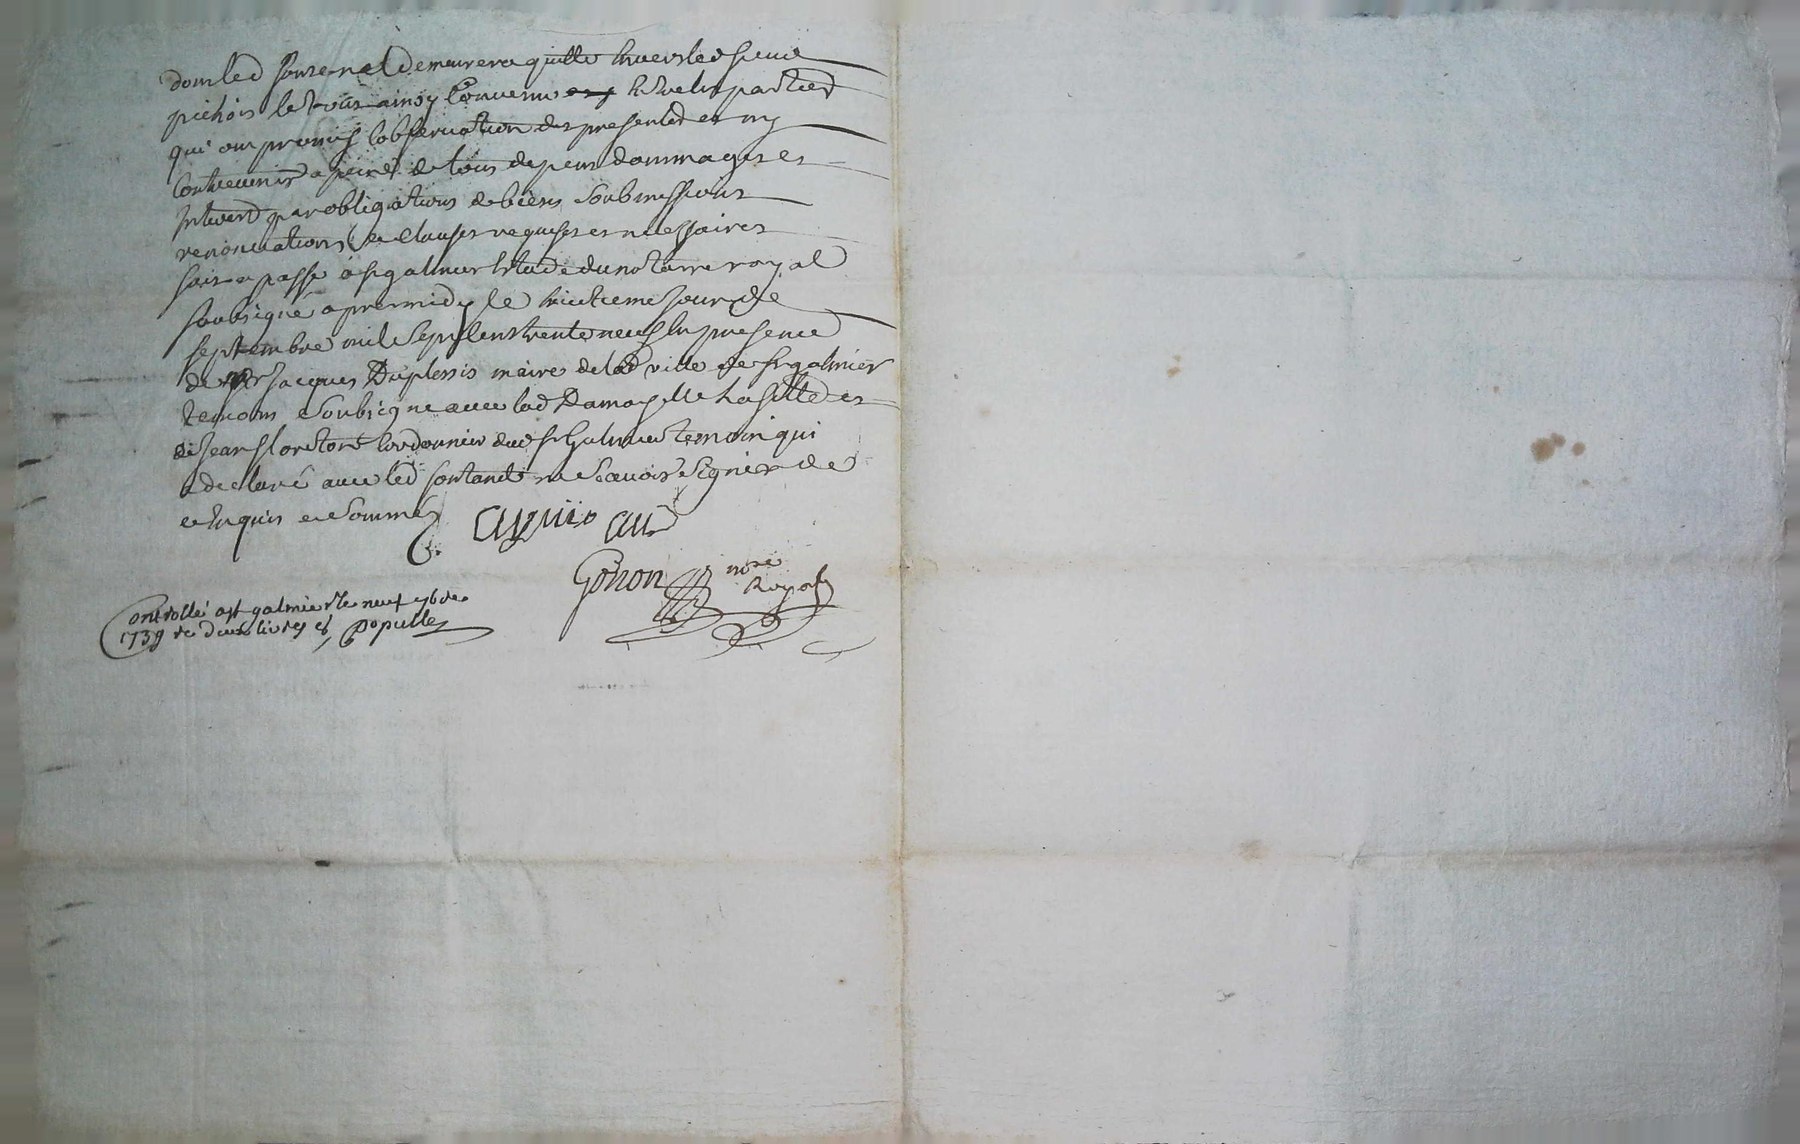 dont led fontanel demeurera quitte envers led sieur
pichois le tout ainsy convenu entre les parties
qui ont promis lobservation des presentes et ny
contrevenir a peine de tous depens dommages et
interest par obligations de biens soubmissions
renonciations et clauses requises et necessaires
fait et passé a st galmier etude du notaire royal
soubsigné apres midy le huitieme jour de
septembre mil sept cent trente neuf en presence
de Jacques Duplessis maire de lad ville de st galmier
temoin soubsigné avec lad Damoyselle et
de jean cordonnier dud st Galmier temoin qui
a declaré avec led ne scavoir signer de
ce enquis et sommés
Gonon nore Royal
Controllé a st galmier le neuf 7bre
1739 re deux livres Populle